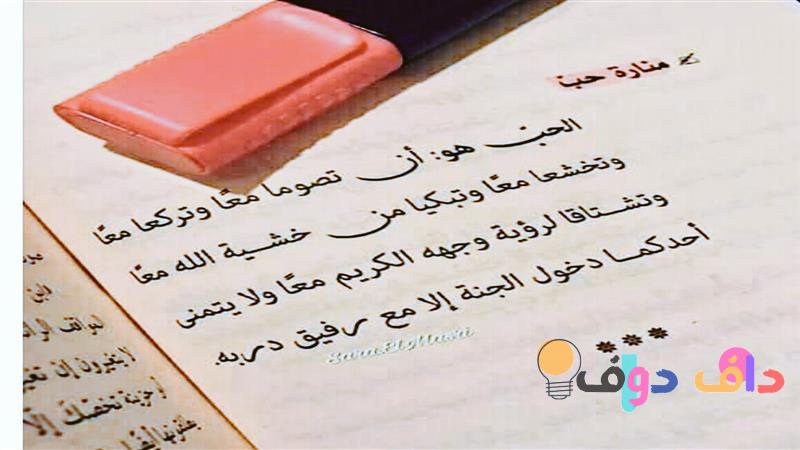 منارة حب
الحب هو: أن تصوما معًا وتركعا معًا
وتخشعا معًا وتبكيا من خشية الله معًا
وتشتاقا لرؤية وجهه الكريم معًا ولا يتمنى
أحدكما دخول الجنة إلا مع رفيق دربه.
***
Sara El Masri
داف دوف
لا يغيرون إن تغير